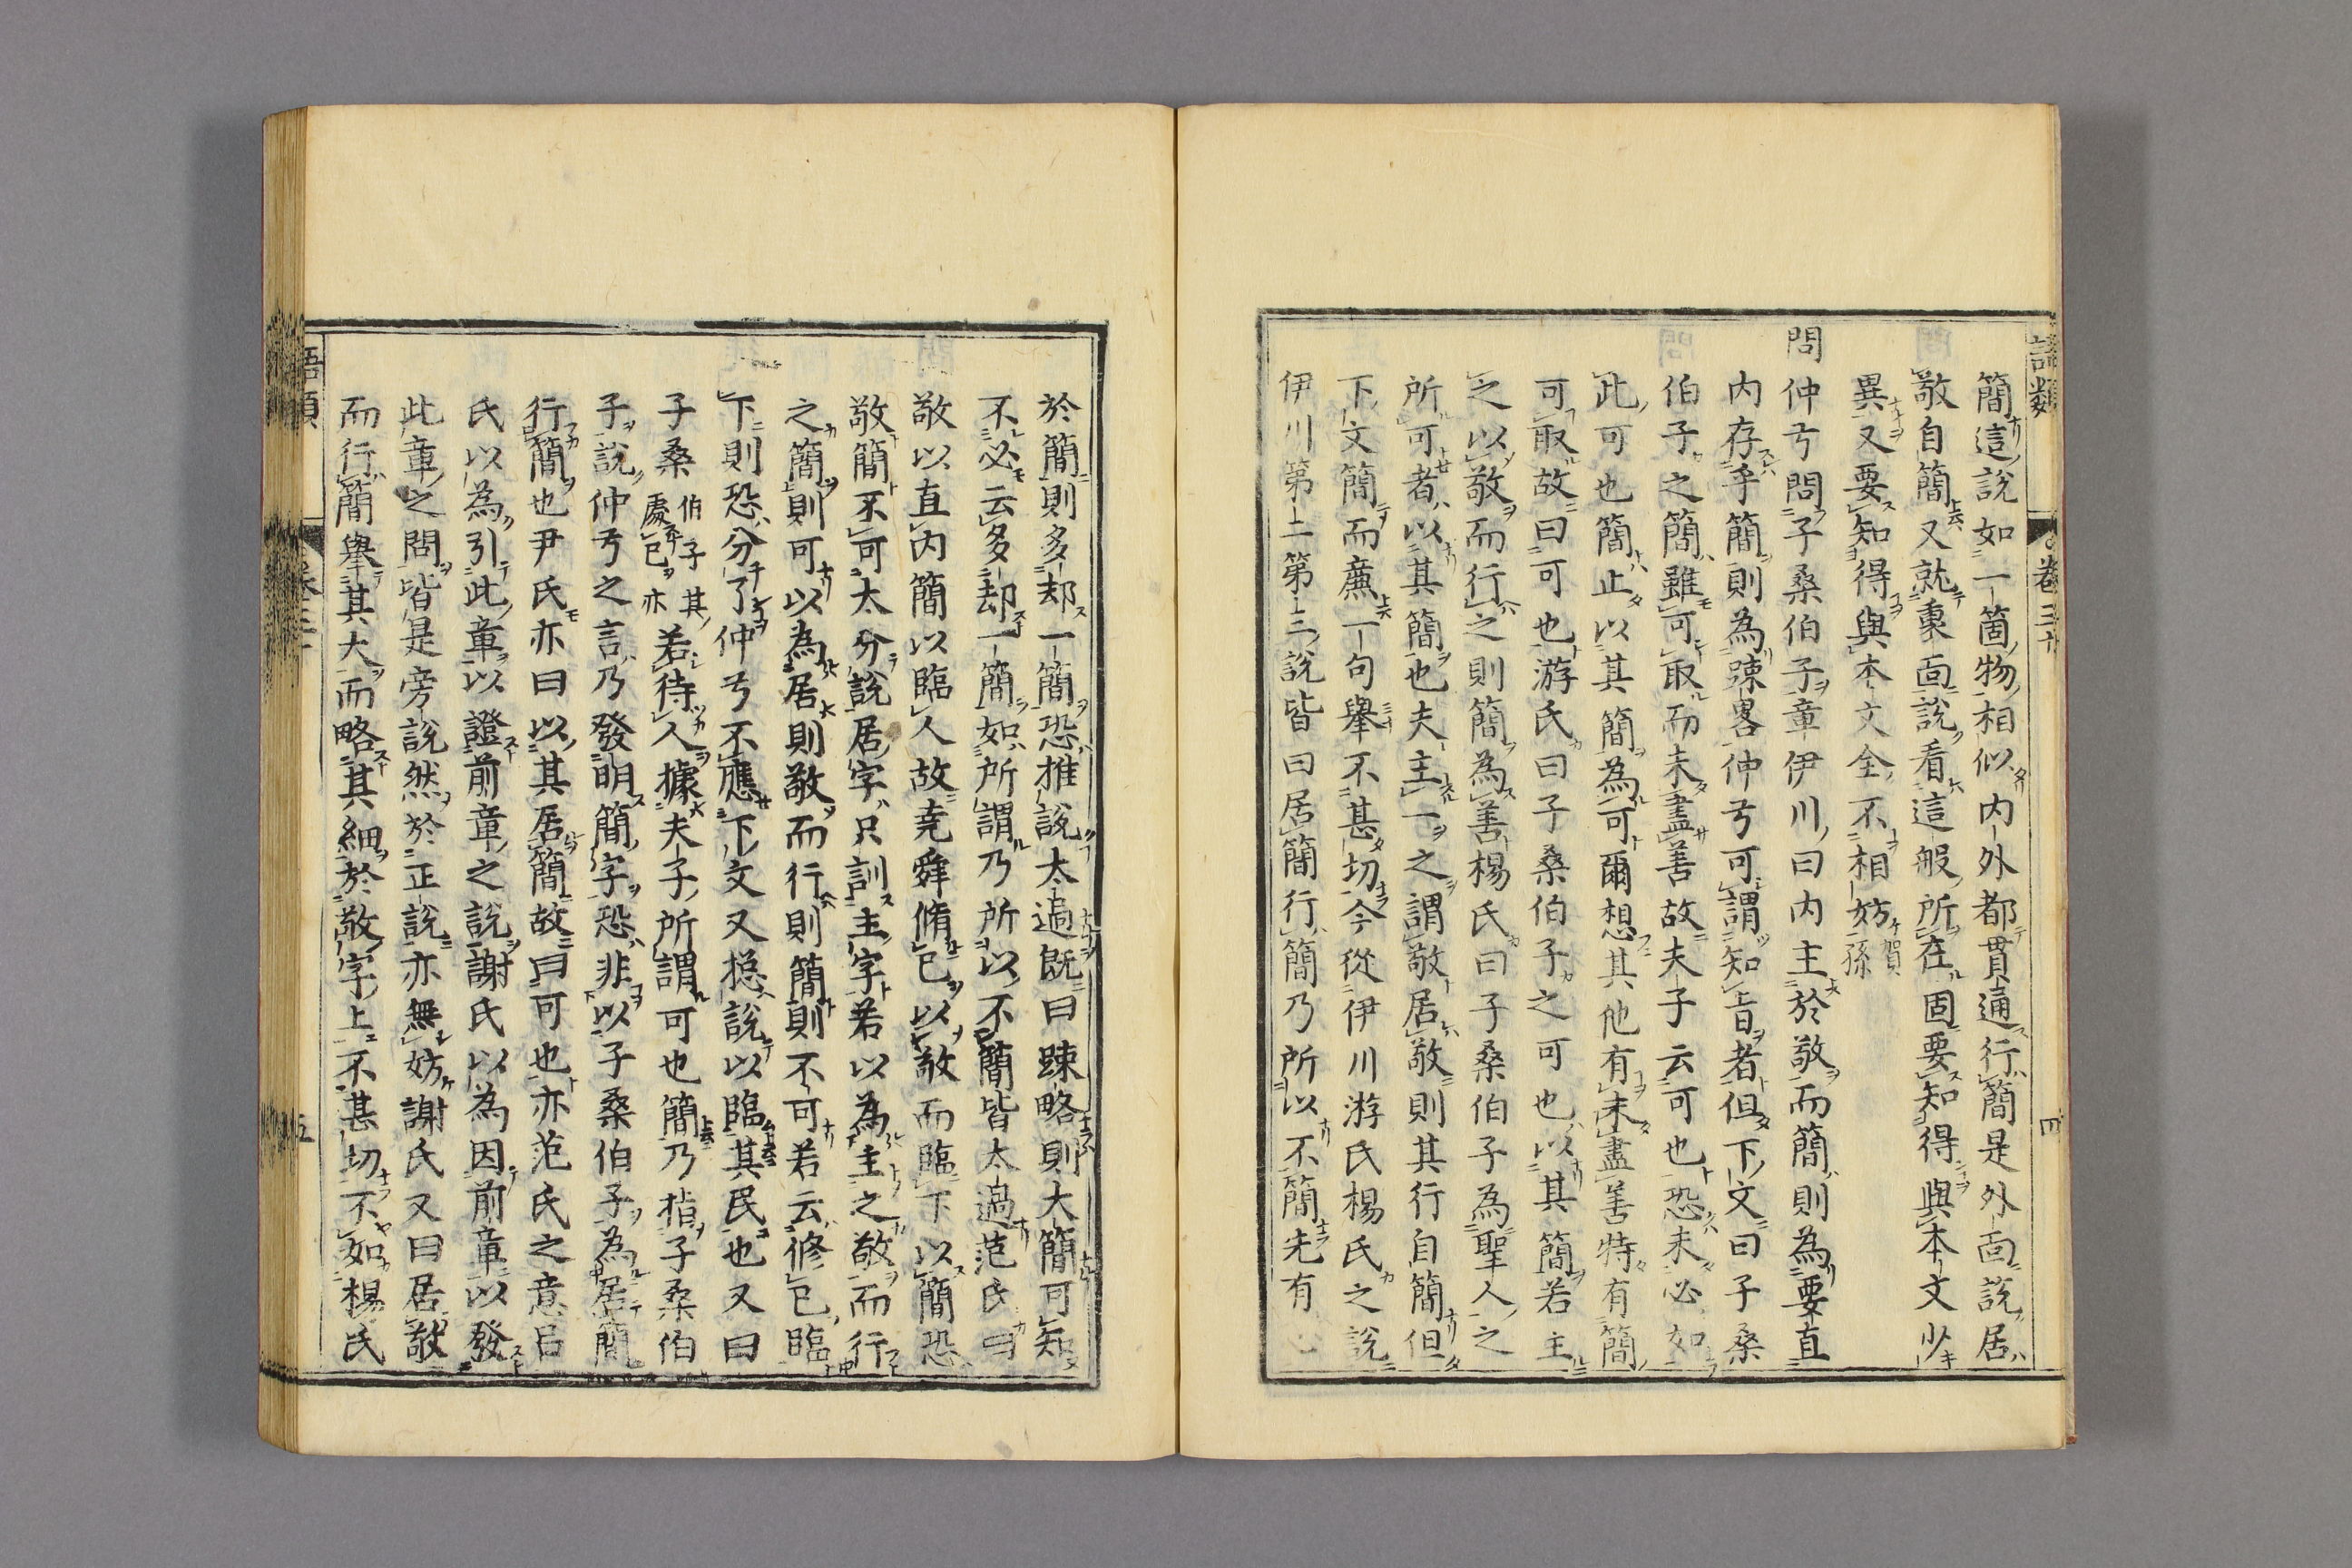 語類
卷三十
四
簡這說如一箇物相似內外都貫通行簡是外面說居
敬自簡又就裏面說看這般所在固要知得與本文少
異又要知得與本文全不相妨賀孫
問仲弓問子桑伯子章伊川曰內主於敬而簡則為要直
內存乎簡則為踈畧仲弓可謂知旨者但下文曰子桑
伯子之簡雖可取而未盡善故夫子云可也恐未必如
此可也簡止以其簡為可爾想其他有未盡善特有簡
可取故曰可也游氏曰子桑伯子之可也以其簡若主
之以敬而行之則簡為善楊氏曰子桑伯子為聖人之
所可者以其簡也夫主一之謂敬居敬則其行自簡但
下文簡而廉一句舉不甚切今從伊川游氏楊氏之說
伊川第二第三說皆曰居簡行簡乃所以不簡先有心
於簡則多却一簡恐推說太過既曰踈略則大簡可知
不必云多却一簡如所謂乃所以不簡皆太過范氏曰
敬以直內簡以臨人故堯舜脩己以敬而臨下以簡恐
敬簡不可太分說居字只訓主字若以為主之敬而行
之簡則可以為居則敬而行則簡則不可若云修己臨
下則恐分了仲弓不應下文又揔說以臨其民也又曰
子桑伯子其處己亦若待人據夫子所謂可也簡乃指子桑伯
子說仲弓之言乃發明簡字恐非以子桑伯子為居簡
行簡也尹氏亦曰以其居簡故曰可也亦范氏之意呂
氏以為引此章以證前章之說謝氏以為因前章以發
此章之問皆是旁說然於正說亦無妨謝氏又曰居敬
而行簡舉其大而略其細於敬字上不甚切不如楊氏
語類
卷三十
五